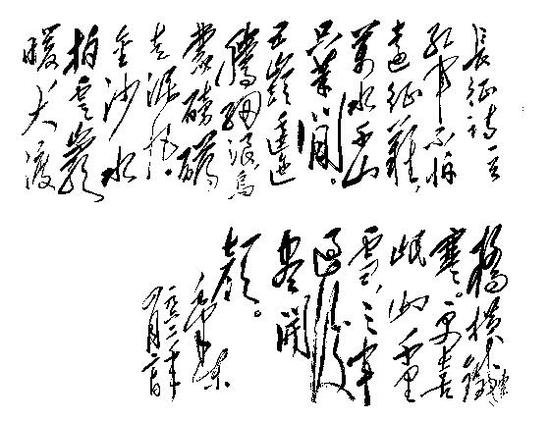 長征詩一首
红軍不怕
遠征難,
萬水千山
只等閒。
五嶺逶迤
騰細浪,烏
蒙磅礴
走泥丸。
金沙水
拍雲巖
暖,大渡
橋橫鐵索
寒。更喜
岷山千里
雪,三軍
過後
盡開
顏。
毛澤東
一九六二年